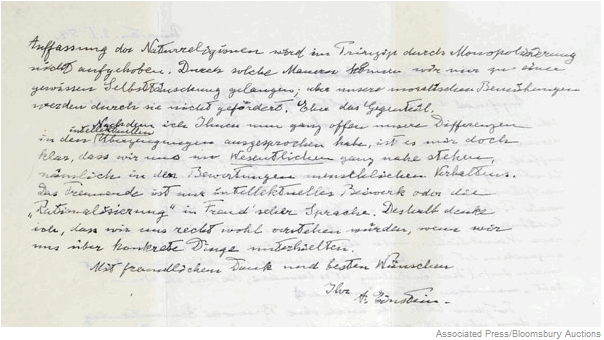 Auffassung der Naturreligionen wird im Prinzip durch Monopolisierung
nicht aufgehoben. Durch solche Mauern können wir nur zu einer
gewissen Selbsttäuschung gelangen; aber unsere moralischen Bemühungen
werden durch sie nicht gefördert. Eher das Gegenteil.
Nachdem ich Ihnen nun ganz offen unsere Differenzen
in den intellektuellen Überzeugungen ausgesprochen habe, ist es mir doch
klar, dass wir uns im Wesentlichen ganz nahe stehen,
nämlich in den Bewertungen menschlichen Verhaltens.
Das Trennende ist nur intellektuelles Beiwerk oder die
„Rationalisierung" in Freud'scher Sprache. Deshalb denke
ich, dass wir uns recht wohl verstehen würden, wenn wir
uns über konkrete Dinge unterhielten.
Mit freundlichem Dank und besten Wünschen
Ihr A. Einstein.
Associated Press/Bloomsbury Auctions